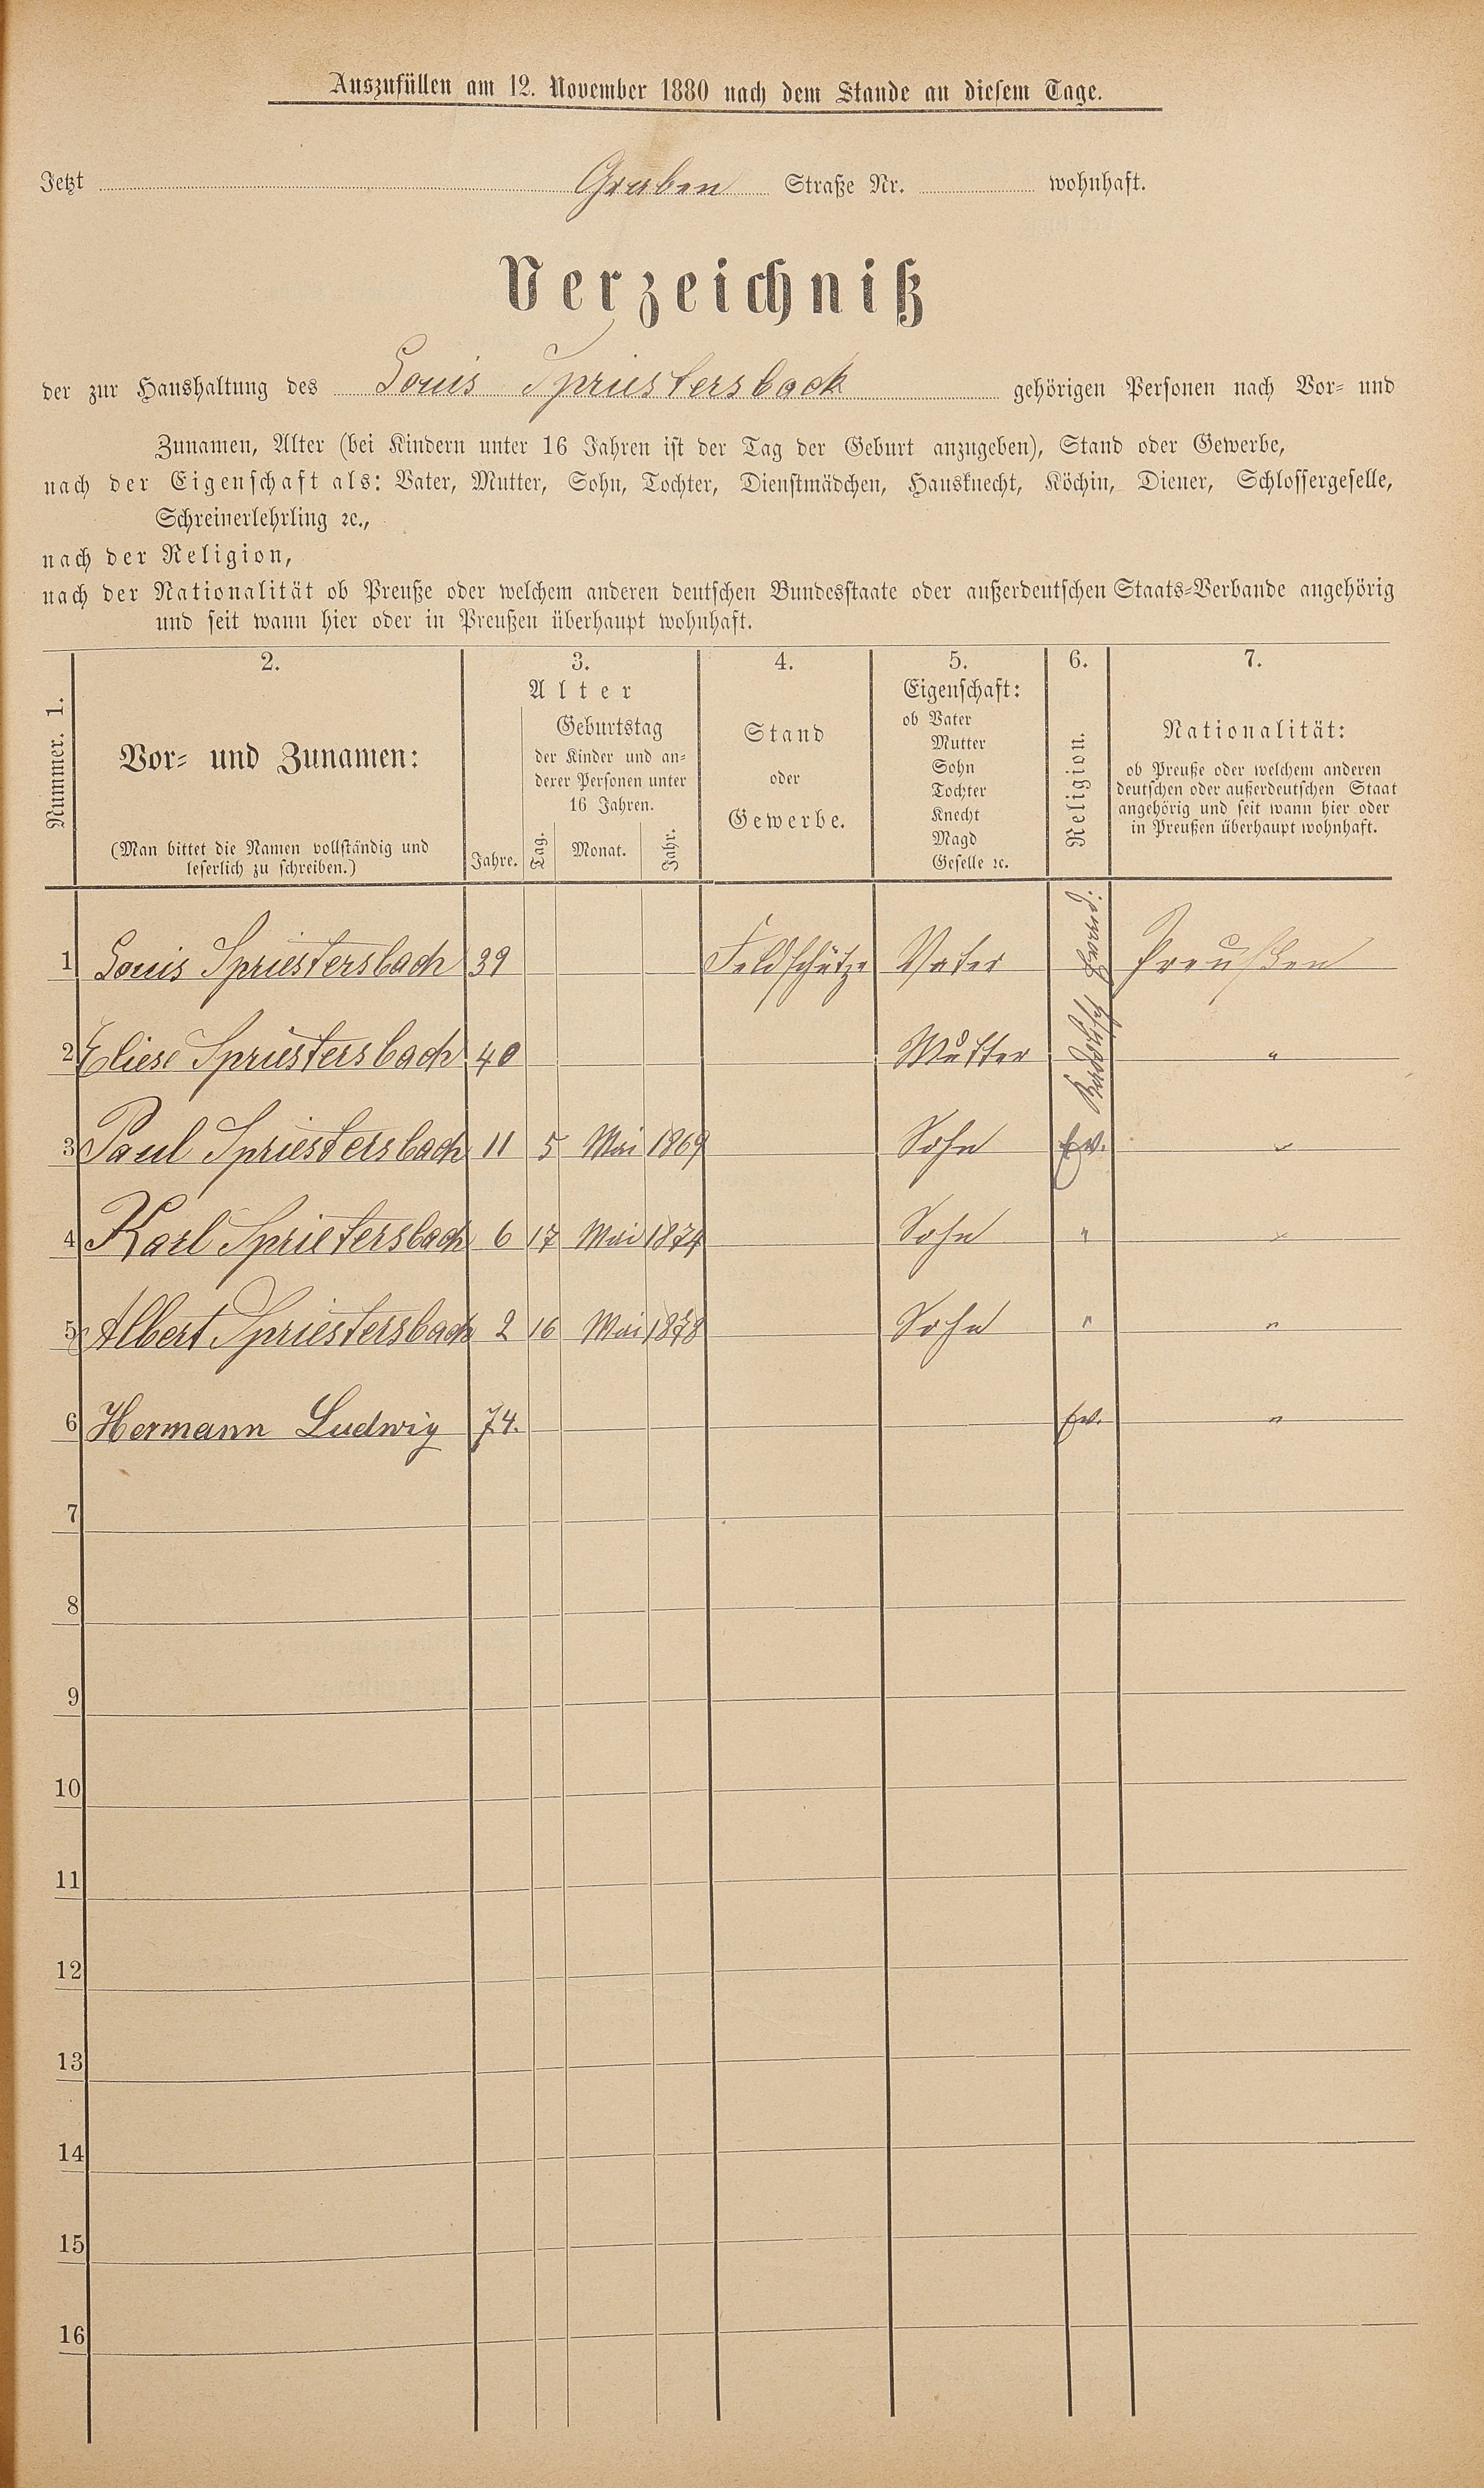 Auszufüllen am 12. November 1880 nach dem Stande an diesem Tage.
Jetzt Graben Straße Nr. wohnhaft.
Verzeichniß
der zur Haushaltung des Louis Spriestersbach gehörigen Personen nach Vor- und
Zunamen, Alter (bei Kindern unter 16 Jahren ist der Tag der Geburt anzugeben), Stand oder Gewerbe,
nach der Eigenschaft als: Vater, Mutter, Sohn, Tochter, Dienstmädchen, Hausknecht, Köchin, Diener, Schlossergeselle,
Schreinerlehrling ꝛc.,
nach der Religion,
nach der Nationalität ob Preuße oder welchem anderen deutschen Bundesstaate oder außerdeutschen Staats-Verbande angehörig
und seit wann hier oder in Preußen überhaupt wohnhaft.
Nummer. 1.
2.
Vor- und Zunamen:
(Man bittet die Namen vollständig und
leserlich zu schreiben.)
3.
Alter
Jahre.
Geburtstag
der Kinder und an-
derer Personen unter
16 Jahren.
Tag. Monat. Jahr.
4.
Stand
oder
Gewerbe.
5.
Eigenschaft:
ob Vater
Mutter
Sohn
Tochter
Knecht
Magd
Geselle ꝛc.
6.
Religion.
7.
Nationalität:
ob Preuße oder welchem anderen
deutschen oder außerdeutschen Staat
angehörig und seit wann hier oder
in Preußen überhaupt wohnhaft.
1 Louis Spriestersbach 39 Feldschütze Vater Preußen
2 Eliese Spriestersbach 40 Mutter "
3 Paul Spriestersbach 11 5 Mai 1869 Sohn Ev. "
4 Karl Sprietersbach 6 17 Mai 1874 Sohn " "
5 Albert Spriestersbach 2 16 Mai 1878 Sohn " "
6 Hermann Ludwig 74. Ev. "
7
8
9
10
11
12
13
14
15
16